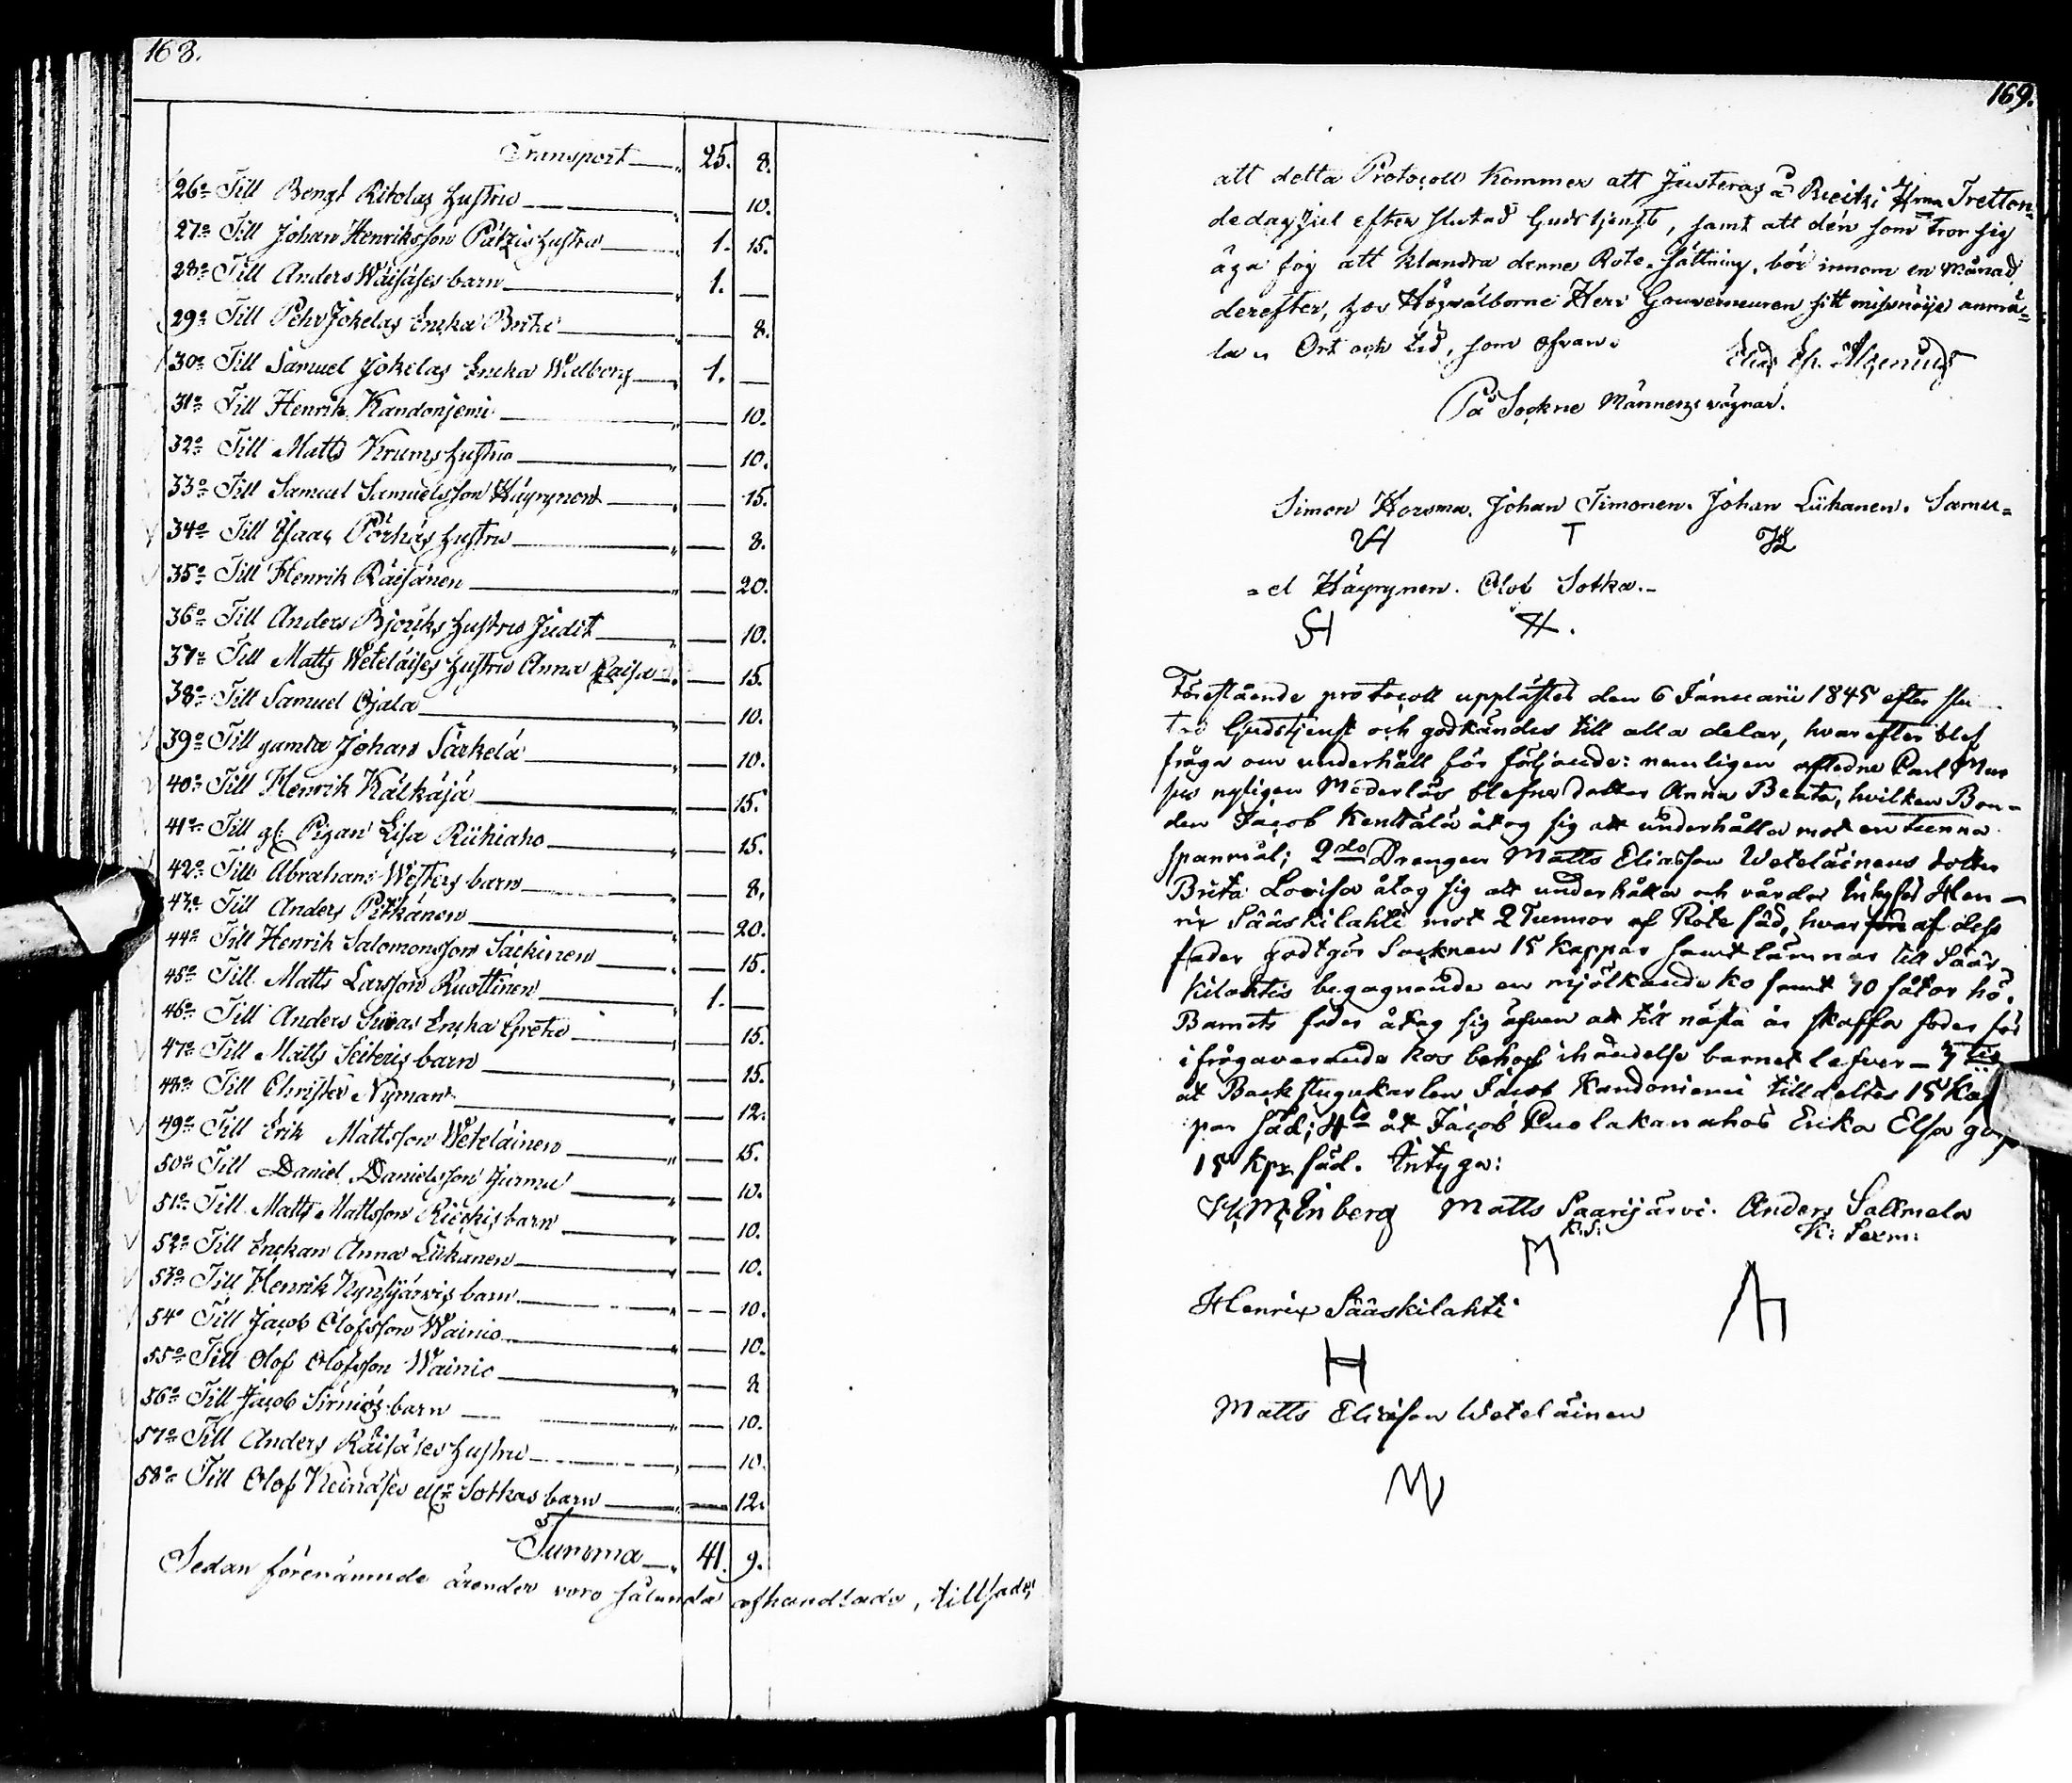 168.
Transport 25. 8.
26o Till Bengt Ritolas hustru 10.
27o Till Johan Henriksson Pätzis hustru 1. 15.
28o Till Anders Wäisäses barn 1.
29o Till Pehr Jokelas Enka Brita 8.
30o Till Samuel Jokelas Enka Wallborg 1.
31o Till Henrik Kandonjemi 10.
32o Till Matts Krums hustru 10.
33o Till Samuel Samuelsson Häyrynen 15.
34o Till Isaac Pörhäs hustru 8.
35o Till Henrik Räisänen 20.
36o Till Anders Björks hustru Judit 10.
37o Till Matts Weteläises hustru Anna Caisa 15.
38o Till Samuel Ojala 10.
39o Till gamla Johan Särkelä 10.
40o Till Henrik Kälkäjä 15.
41o Till gl. Pigan Lisa Riihiaho 15.
42o Till Abraham Westers barn 8.
43o Till Anders Pitkänen 20.
44o Till Henrik Salomonsson Säckinen 15.
45o Till Matts Larsson Ruottinen 1.
46o Till Anders Enka Greta 15.
47o Till Matts Seiteris barn 15.
48o Till Christer Nyman 12.
49o Till Erik Mattsson Weteläinen 15.
50o Till Daniel Danielsson Jurmu 10.
51o Till Matts Mattsson Riekis barn 10.
52o Till Enkan Anna Lükanen 10.
53o Till Henrik Kynsijärwis barn 10.
54o Till Jacob Olofsson Wainio 10.
55o Till Olof Olofsson Wainio 8
56o Till Jacob Sirniös barn 10.
57o Till Anders Räisäses hustru 10.
58o Till Olof Heinäses ellr Sotkas barn 12.
Summa 41. 9.
Sedan förenämnde ärender voro sålunda afhandlade, tillsades
169.
att detta Protocoll kommer att Justeras å Rieiki Hmn Tretton-
dedag Jul efter slutad Gudstjenst, samt att den som tror sig
äga fog att klandra denna Rote-sättning, bör innom en månad
derefter, hos Högvälborne Herr Gouverneuren sitt missnöije anmä-
la. Ort och tid, som ofvan.
Elias Eh.
På Sockne Männens vägnar.
Simon Horsma. Johan Timonen. Johan Lükanen. Samu=
SH T JL
=el Häyrynen. Olof Sotka.
SH
Förestående protocoll upplästes den 6 Januarii 1845 efter slu
tad Gudstjenst och godkändes till alla delar, hvarefter blef
fråga om underhåll för följande: nemligen aflidne Carl Mur
sus nyligen Moderlös blefne dotter Anna Beata, hvilken Bon-
den Jacob Kenttälä åtog sig att underhålla mot en tunna
spanmål; 2do Drengen Matts Eliasson Weteläinens dotter
Brita Lovisa åtog sig att underhålla och vårda Inhyses Hen-
rix Sääskilahti mot 2 Tunnor af Rote säd, hvarföre af dess
fader godtgör Socknen 15 kappar samt lämnar till Sääs-
kilahtis begagnande en mjölkande ko samt 10 såtor hö.
Barnets fader åtog sig äfven att till nästa år skaffa foder för
ifrågavarande kos behof ihändelse barnet lefver - 3tio
åt Backstugukarlen Jacob Kandoniemi tilldeltes 15 Kap
par säd; 4to åt Jacob Puolakanahos Enka Elsa gafs
15 kpr säd. Intyga:
H. M. Enberg Matts Saarijärvi. Anders Sallmela
K.S: K: Sexm:
M A
Henrix Sääskilahti
H
Matts Eliasson Weteläinen
M